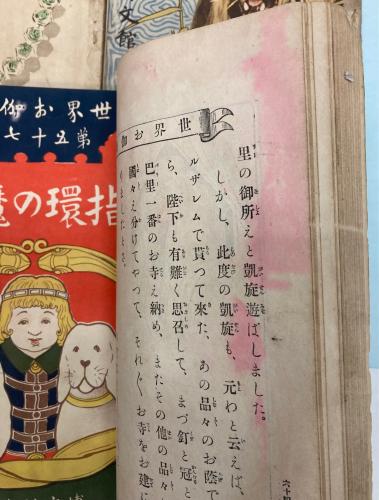 文館
世界お伽
第五十七
指環の魔
世界お伽
里の御所えと凱旋遊ばしました。
しかし、此度の凱旋も、元わと云えば、
ルザレムで貰つて來た、あの品々のお蔭で
ら、陛下も有難く思召して、まづ釘と冠と
巴里一番のお寺え納め、またその他の品々
國々え分けてやつて、それぐお寺をお建に
りましたとさ。